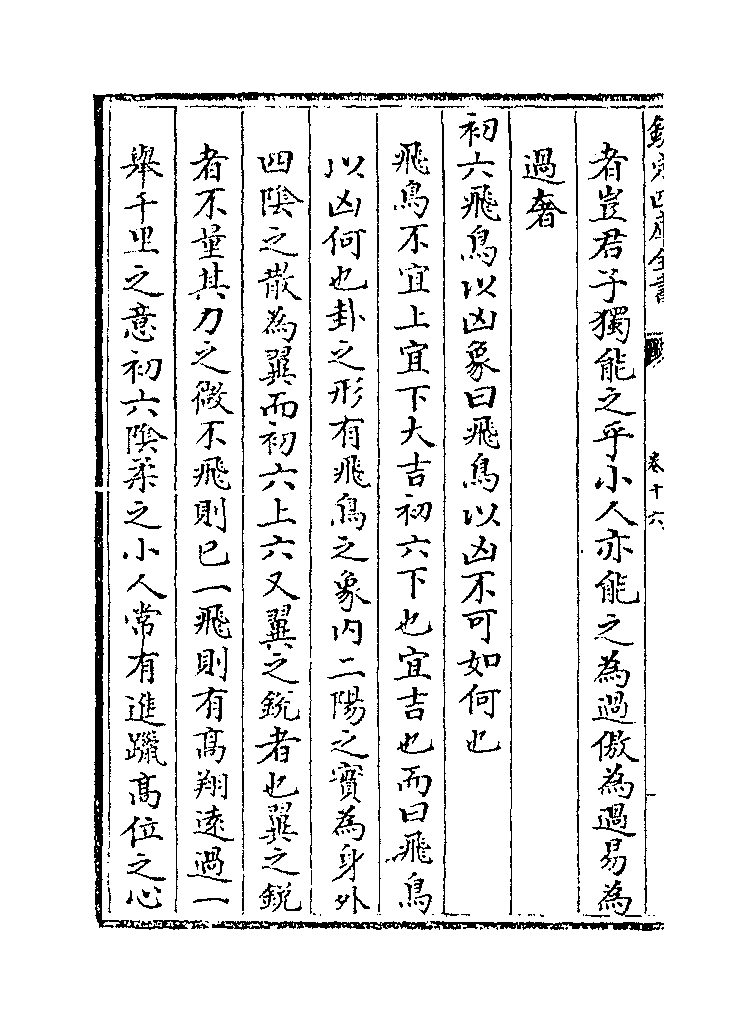 欽定四庫全書
卷十六
者豈君子獨能之乎小人亦能之為過傲為過易為
過奢
初六飛鳥以凶象曰飛鳥以凶不可如何也
飛鳥不宜上宜下大吉初六下也宜吉也而曰飛鳥
以凶何也卦之形有飛鳥之象内二陽之實為身外
四陰之散為翼而初六上六又翼之銳者也翼之銳
者不量其力之微不飛則已一飛則有高翔遠過一
舉千里之意初六陰柔之小人常有進躐高位之心